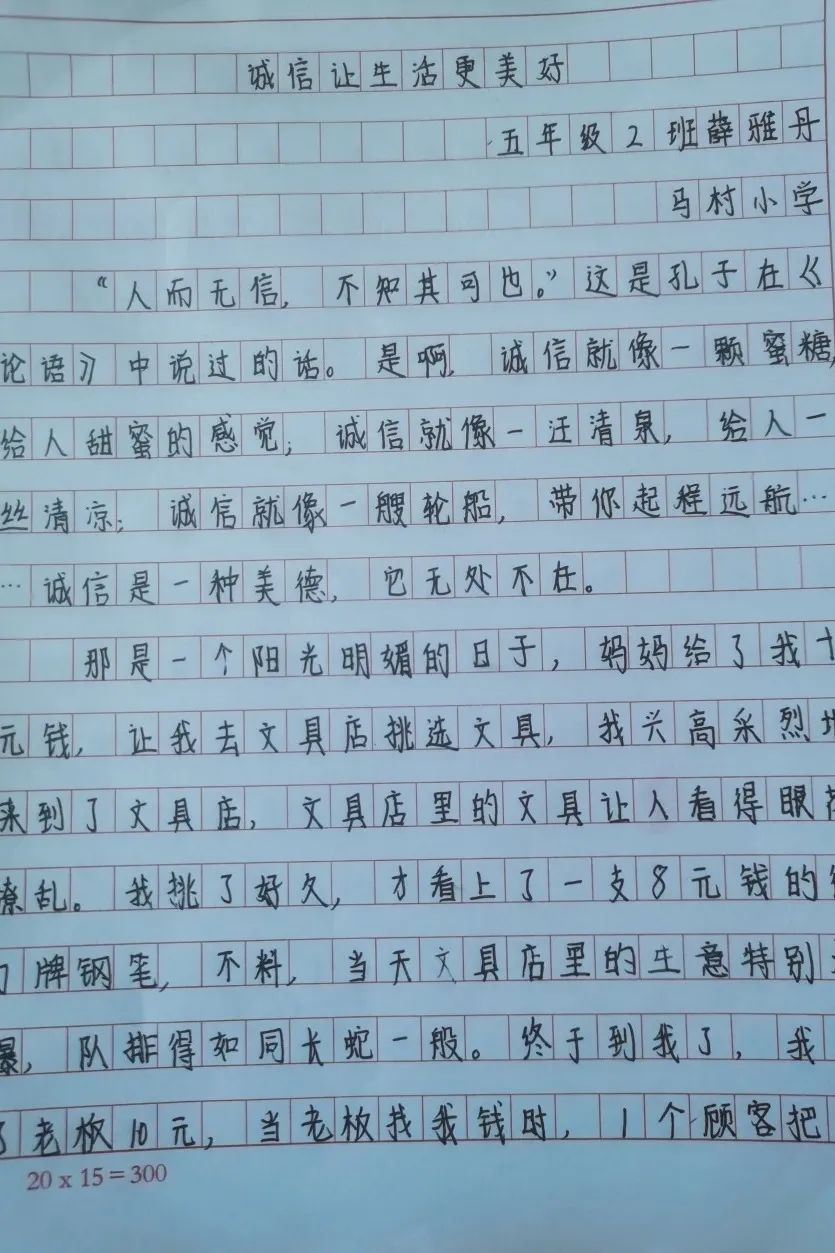 诚信让生活更美好
五年级2班薛雅丹
马村小学
“人而无信，不知其可也。”这是孔子在《
论语》中说过的话。是啊，诚信就像一颗蜜糖，
给人甜蜜的感觉；诚信就像一汪清泉，给人一
丝清凉；诚信就像一艘轮船，带你起程远航…
…诚信是一种美德，它无处不在。
那是一个阳光明媚的日子，妈妈给了我十
元钱，让我去文具店挑选文具，我兴高采烈地
来到了文具店，文具店里的文具让人看得眼花
缭乱。我挑了好久，才看上了一支8元钱的
牌钢笔，不料，当天文具店里的生意特别
爆，队排得如同长蛇一般。终于到我了，我
了老板10元，当老板找我钱时，1个顾客把
20 x 15 = 300